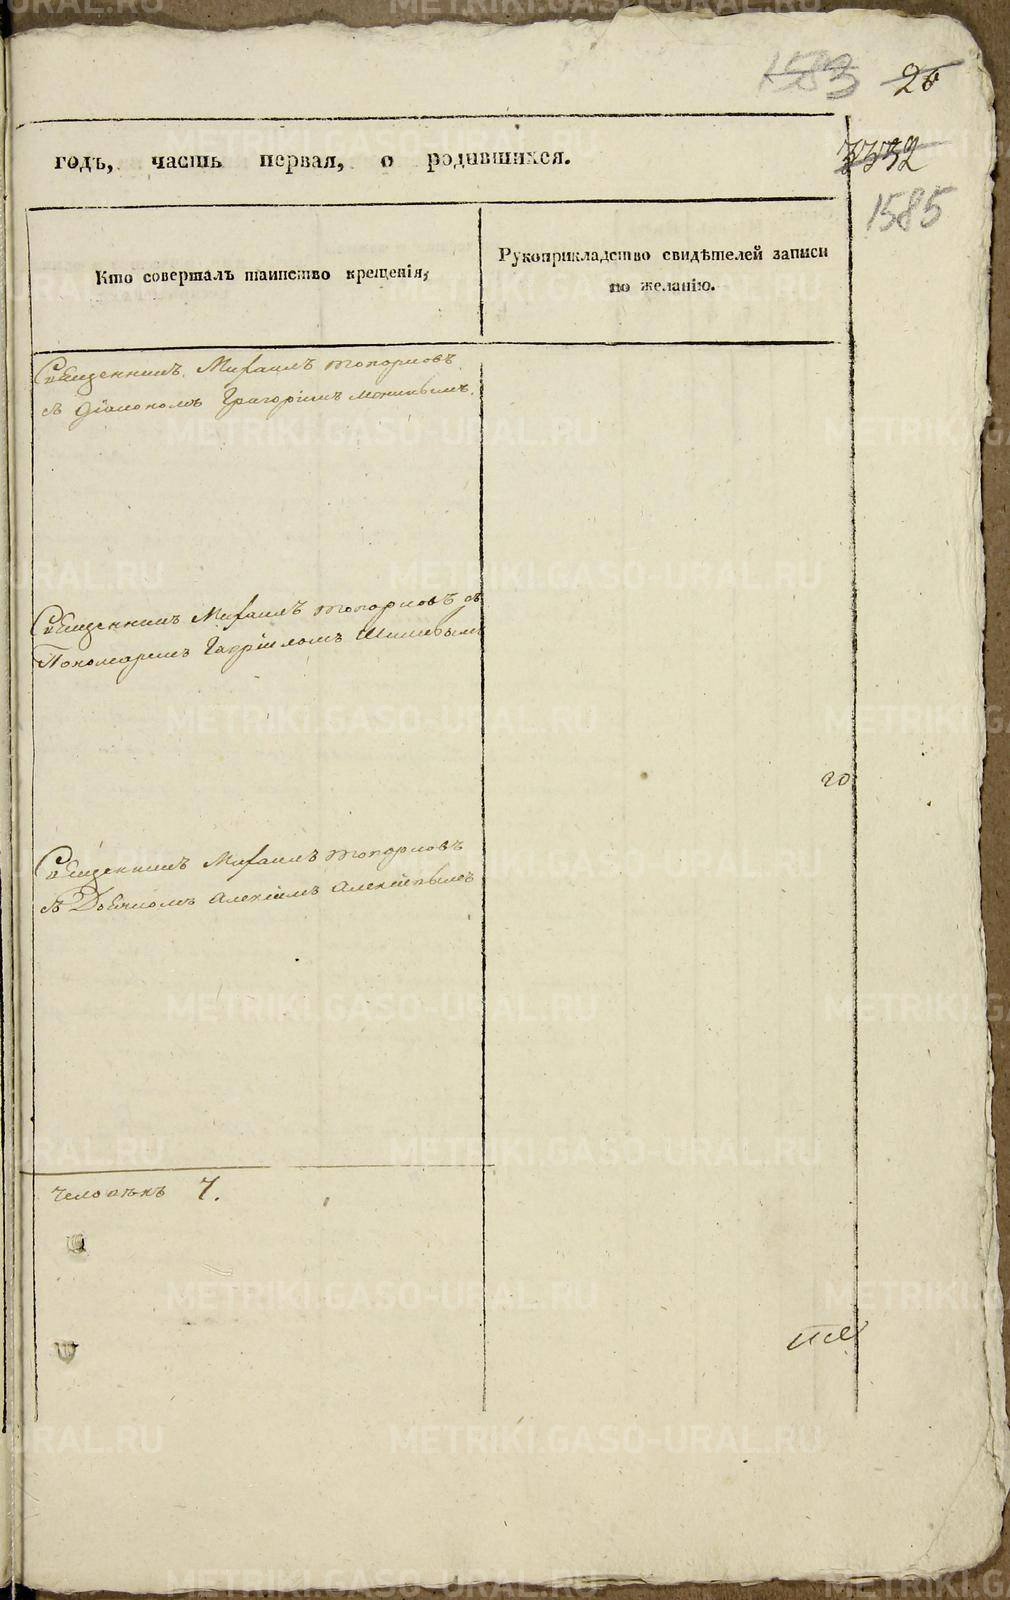 1583 26
годъ, часть первая, о родившихся.
3332
1585
Кто совершалъ таинство крещенія,
Рукоприкладство свидѣтелей записи
по желанію.
Священникъ Михаилъ Топорковъ
съ Діакономъ Григоріемъ
Священникъ Михаилъ Топорковъ съ
Пономаремъ Гавріиломъ Шишевымъ
20
Священникъ Михаилъ Топорковъ
съ Дьячкомъ Алексіемъ Алексіевымъ
Человѣкъ 7.
METRIKI.GASO-URAL.RU